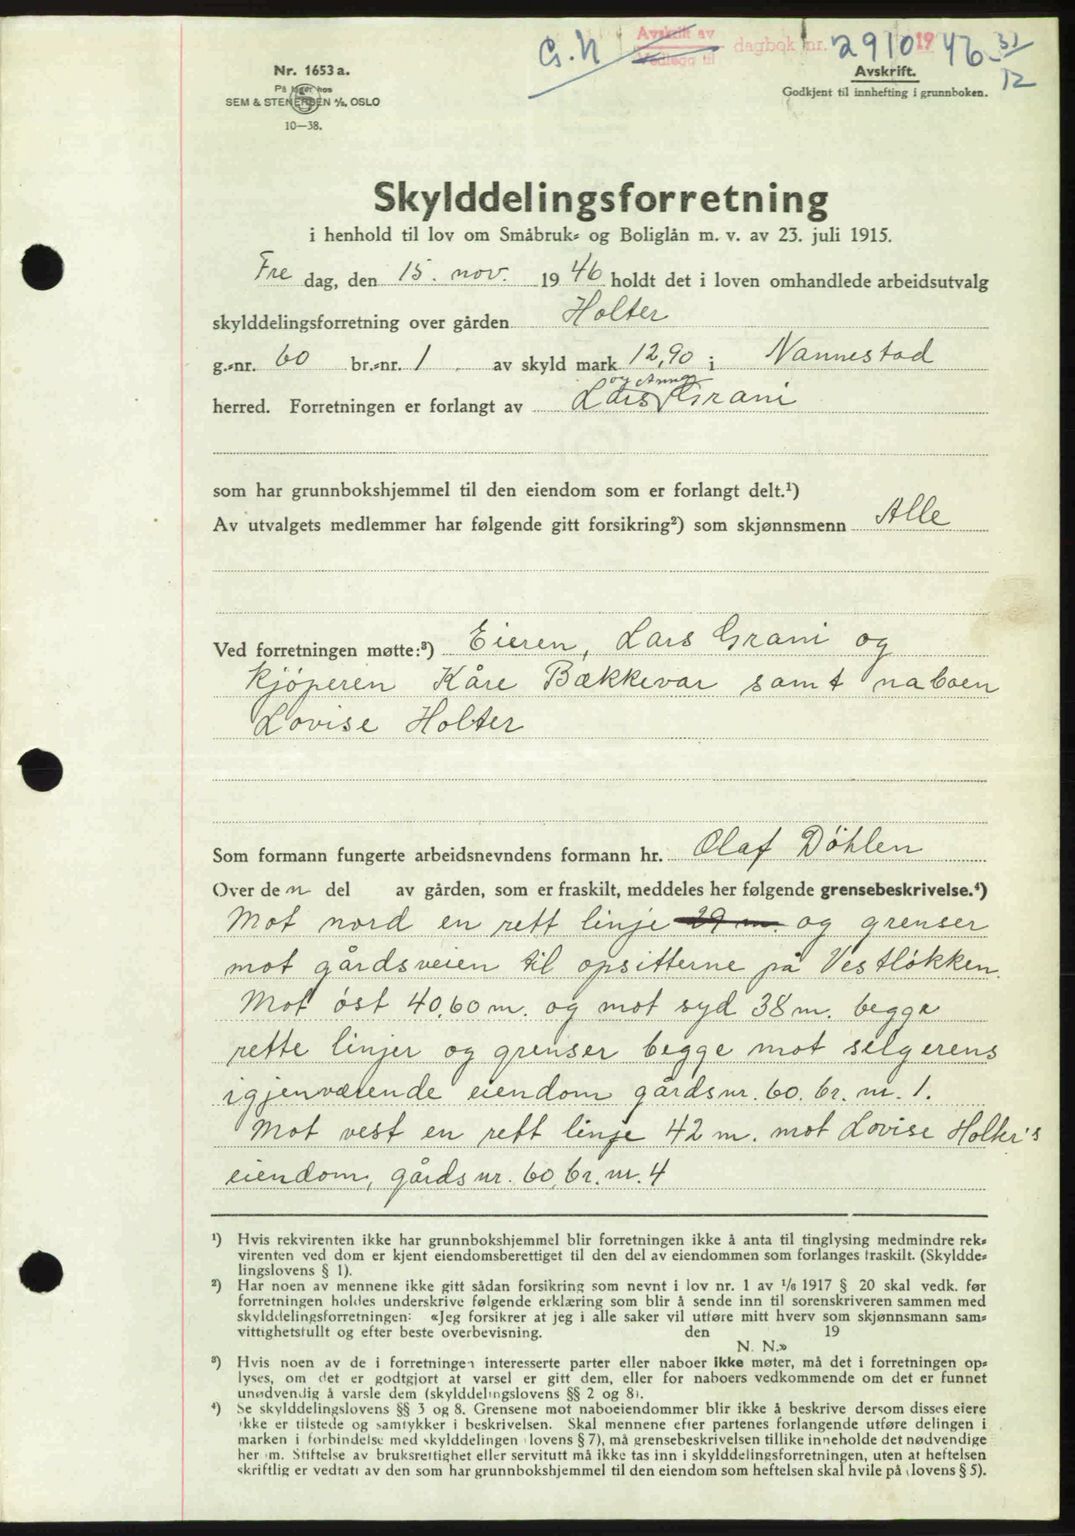 G.N Avskrift av dagbok nr. 2910 1946 31/12
Vedlegg til
Nr. 1653 a.
På lager hos
SEM & STENERSEN A/S, OSLO
10—38.
Avskrift.
Godkjent til innhefting i grunnboken.
Skylddelingsforretning
i henhold til lov om Småbruk- og Boliglån m. v. av 23. juli 1915.
Fre dag, den 15. nov. 1946 holdt det i loven omhandlede arbeidsutvalg
skylddelingsforretning over gården Holter
g.-nr. 60 br.-nr. 1 av skyld mark 12,90 i Nannestad
og Anna
herred. Forretningen er forlangt av Lars Grani
som har grunnbokshjemmel til den eiendom som er forlangt delt.¹)
Av utvalgets medlemmer har følgende gitt forsikring²) som skjønnsmenn Alle
Ved forretningen møtte:³) Eieren, Lars Grani og
kjöperen Kåre Bækkevar samt naboen
Lovise Holter
Som formann fungerte arbeidsnevndens formann hr. Olaf Döhlen
Over den del av gården, som er fraskilt, meddeles her følgende grensebeskrivelse.⁴)
Mot nord en rett linje 29 m. og grenser
mot gårdsveien til opsitterne på Vestlökken.
Mot öst 40,60 m. og mot syd 38 m. begge
rette linjer og grenser begge mot selgerens
igjenværende eiendom gårdsnr. 60. br. nr. 1.
Mot vest en rett linje 42 m. mot Lovise Holter's
eiendom, gårds nr. 60, br. nr. 4
¹) Hvis rekvirenten ikke har grunnbokshjemmel blir forretningen ikke å anta til tinglysing medmindre rek-
virenten ved dom er kjent eiendomsberettiget til den del av eiendommen som forlanges fraskilt. (Skyldde-
lingslovens § 1).
²) Har noen av mennene ikke gitt sådan forsikring som nevnt i lov nr. 1 av 1/6 1917 § 20 skal vedk. før
forretningen holdes underskrive følgende erklæring som blir å sende inn til sorenskriveren sammen med
skylddelingsforretningen: «Jeg forsikrer at jeg i alle saker vil utføre mitt hverv som skjønnsmann sam-
vittighetsfullt og efter beste overbevisning. den 19
N. N.»
³) Hvis noen av de i forretningen interesserte parter eller naboer ikke møter, må det i forretningen op-
lyses, om det er godtgjort at varsel er gitt dem, eller for naboers vedkommende om det er funnet
unødvendig å varsle dem (skylddelingslovens §§ 2 og 8).
⁴) Se skylddelingslovens §§ 3 og 8. Grensene mot naboeiendommer blir ikke å beskrive dersom disses eiere
ikke er tilstede og samtykker i beskrivelsen. Skal mennene efter partenes forlangende utføre delingen i
marken i forbindelse med skylddelingen (lovens § 7), må grensebeskrivelsen tillike inneholde det nødvendige
her om. Stiftelse av bruksrettighet eller servitutt må ikke tas inn i skylddelingsforretningen, uten at heftelsen
skriftlig er vedtatt av den som har grunnbokshjemmel til den eiendom som heftelsen skal hvile på (lovens § 5).